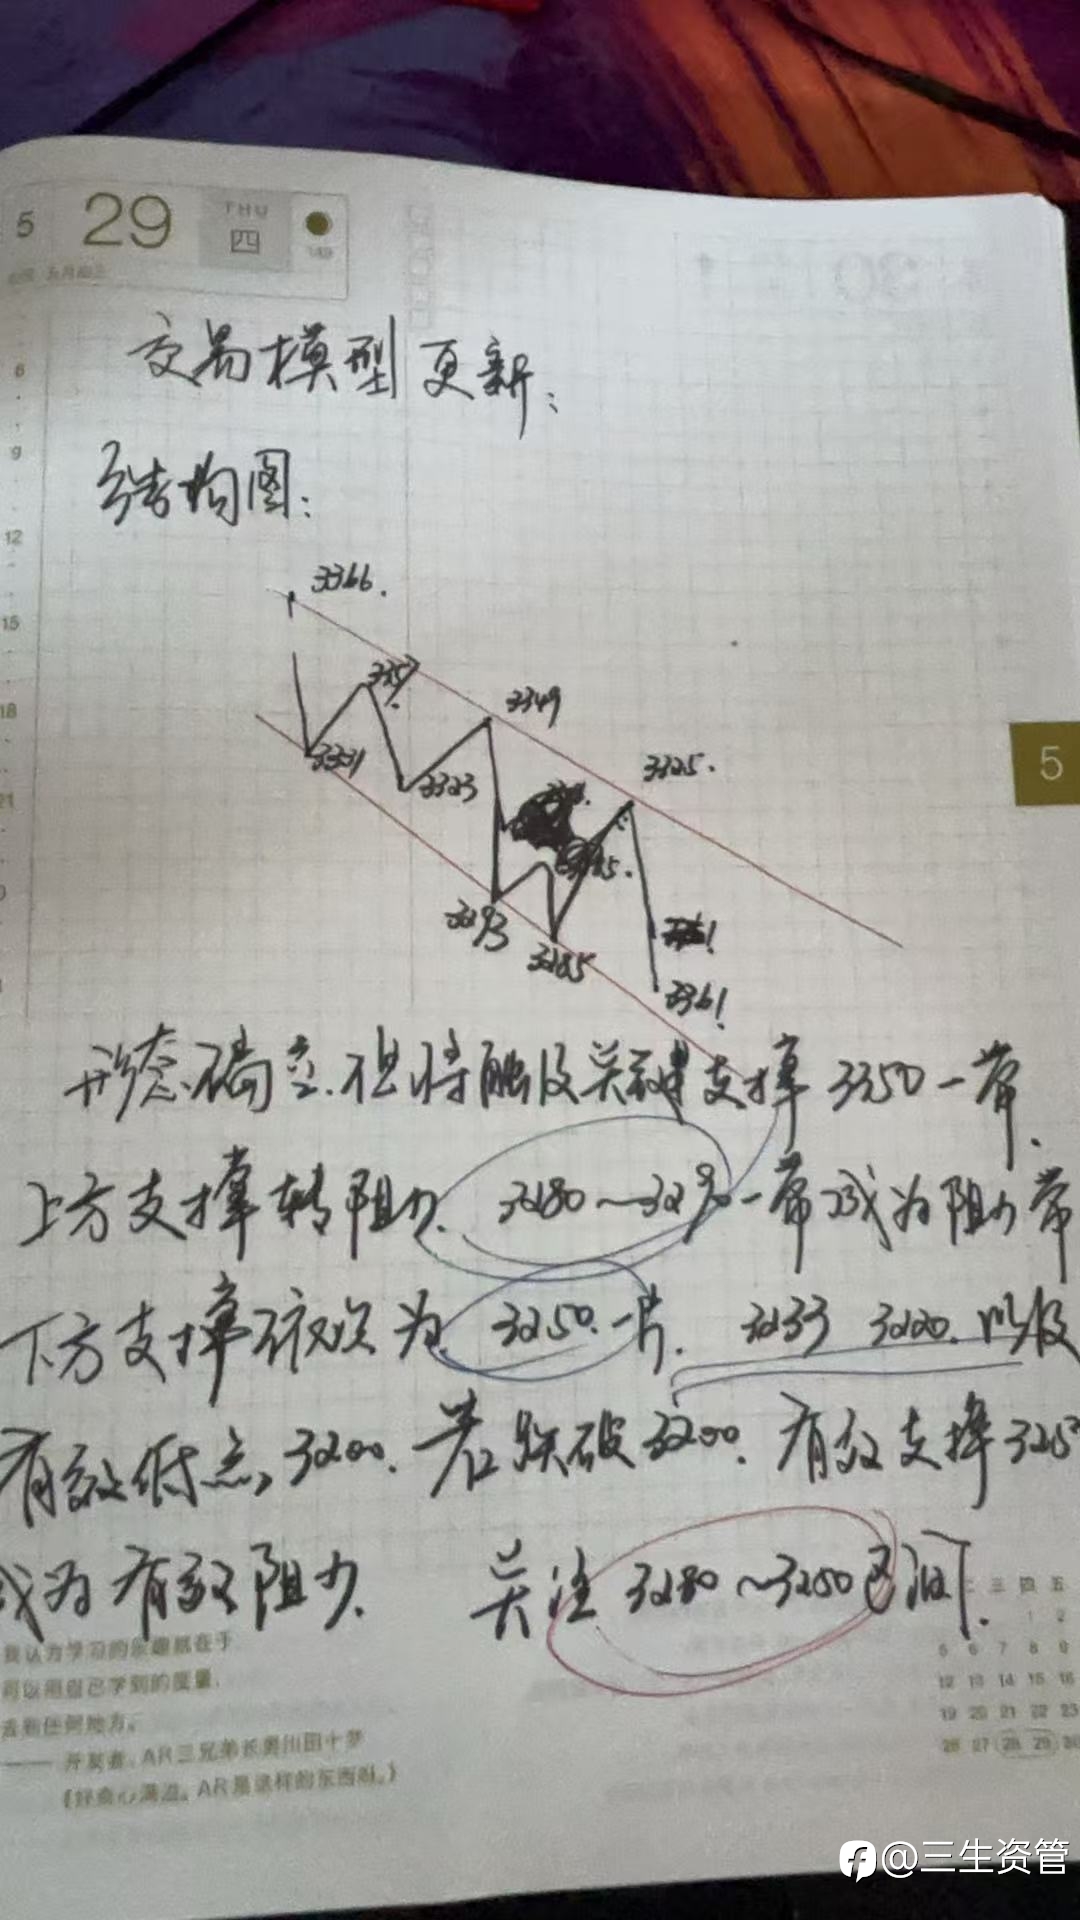 5 29 THU 四
交易模型更新:
结构图:
3366.
3357
3349
3331
3323
3325.
3293
3285
3361!
形态确立.但将触及关键支撑3350一带.
上方支撑转阻力. 3280~3290一带成为阻力带
下方支撑依次为 3250.一片. 3233 3220. 以及
有效低点, 3200. 若跌破3200. 有效支撑325
成为有效阻力. 关注 3280~3250区间.
5
我认为学习的乐趣就在于
可以用自己学到的度量,
去到任何地方。
—— 开发者、AR三兄弟长男川田十梦
《好奇心满溢。AR是这样的东西啊。》
三 四 五
1 2
5 6 7 8 9
12 13 14 15 16
19 20 21 22 23
26 27 28 29 30
@三生资管